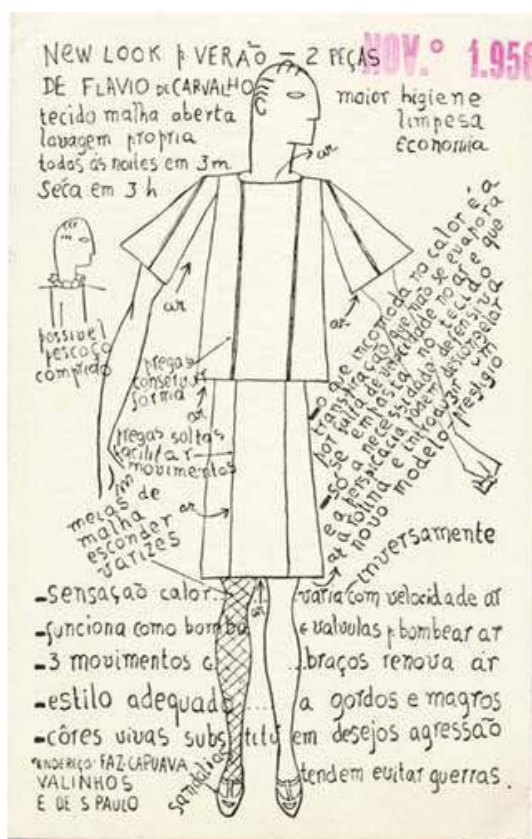 NEW LOOK p VERÃO — 2 PEÇAS
DE FLAVIO DE CARVALHO
tecido malha aberta
lavagem propria
todas ás noites em 3m
Seca em 3 h
NOV.º 1.956
maior higiene
limpesa
economia
ar
possivel
pescoço
comprido
ar
ar
pregas
conservar
forma
ar
pregas soltas
facilitar
movimentos
meias de
malha
esconder
varizes
ar
— o que incomoda no calor é a
transpiração que não se evapora
por falta de velocidade no ar e que
se empesta no tecido
— só a necessidade defensiva
e a perspicacia podem descongelar
a rotina e introduzir um
novo modelo prestigio
ar
inversamente
ar
-sensação calor... varia com velocidade ar
-funciona como bomba e valvulas p bombear ar
-3 movimentos braços renova ar
-estilo adequado.... a gordos e magros
-côres vivas substituem desejos agressão
tendem evitar guerras.
sandalia
ENDEREÇO: FAZ. CAPUAVA
VALINHOS
E DE S PAULO